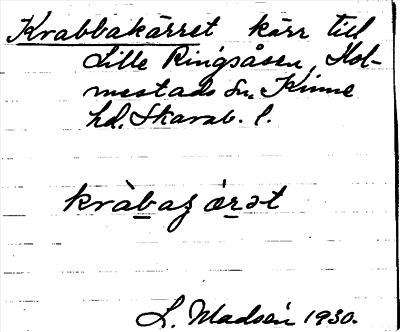 Krabbakärret kärr till
Lille Ringsåsen, Hol-
mestads sn. Kinne
hd. Skarab. l.
kràbaʒ órət
L. Madsén 1930.